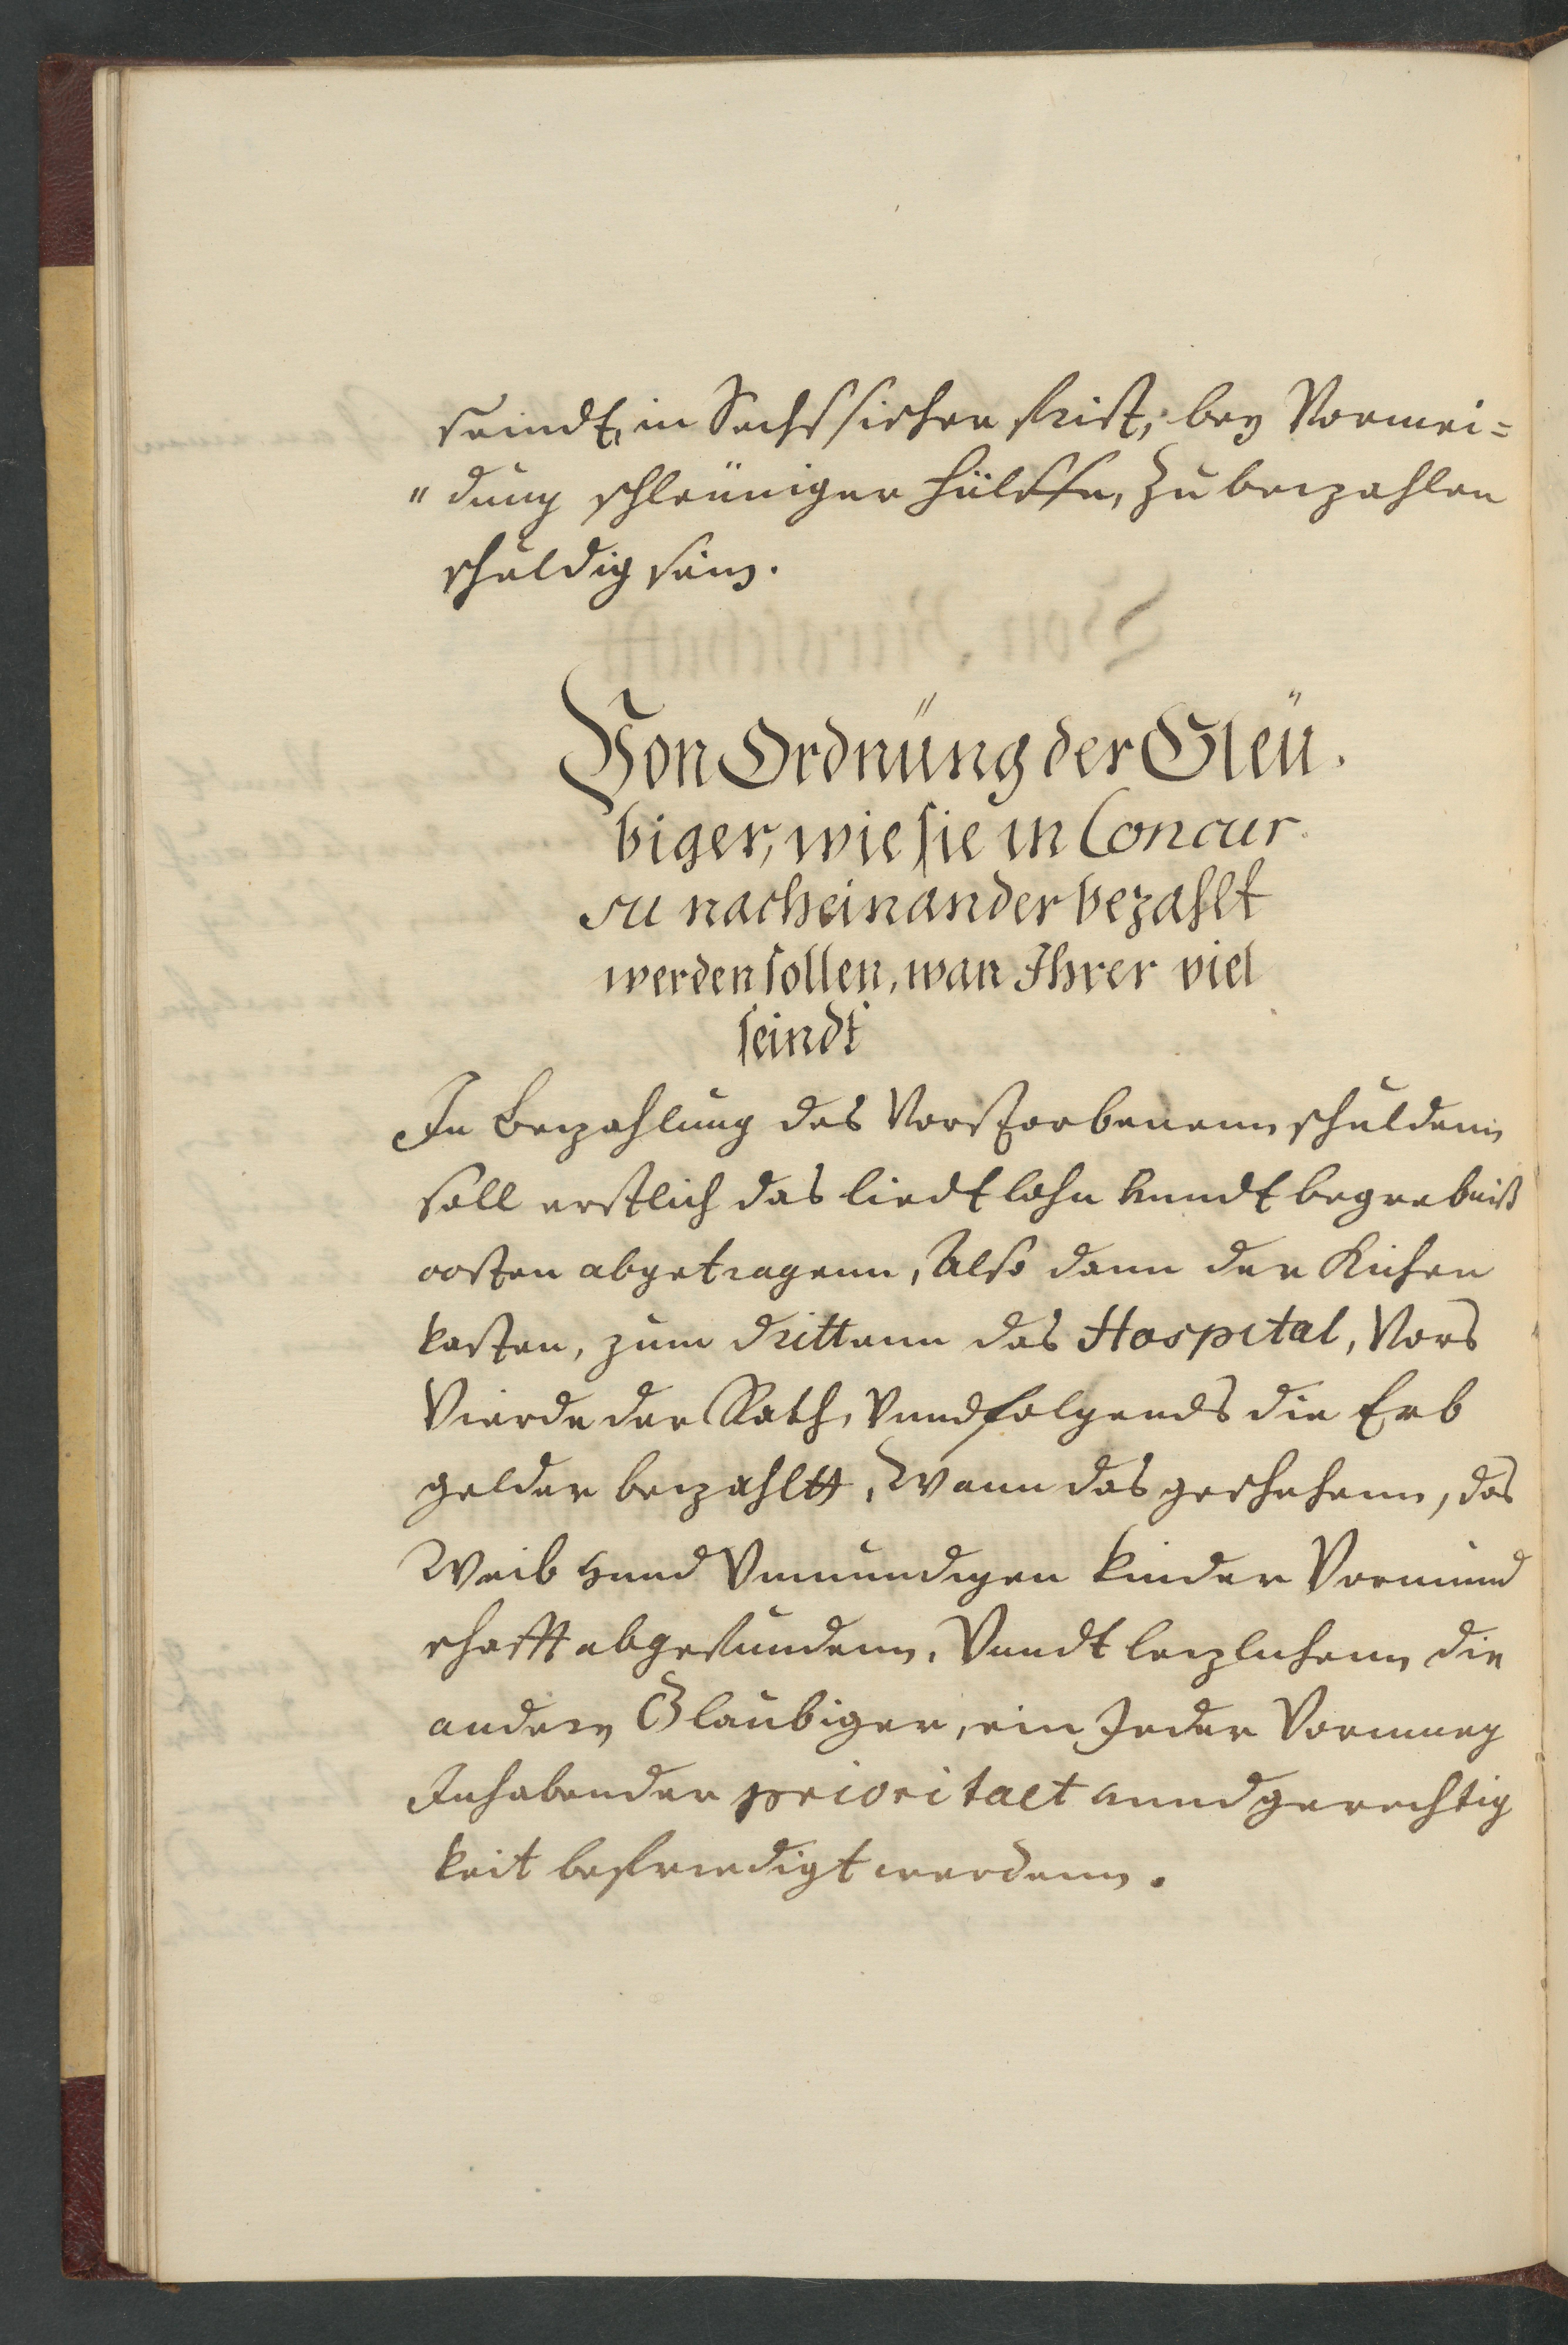 seindt, in Sechssischer frist, bey Vormei=
"dung schleüniger hülffe, Zu beezahlen
schuldig sein.
Von Ordnüng der Gleü.
biger, wie sie in Concur
su nacheinander bezahlt
werden sollen, wan Ihrer viel
seindt
In Beezahlung des Vorstorbenenn schuldenn
soll erstlich das liedtlohn unndt begrebniß
costen abgetragenn, Also dann der Kirchen
kasten, zum drittenn das Hospital, Vors
Vierde der Rath, Vnnd folgends die Erb
gelder beezahltt, Wann das geschehenn, das
Weib unnd Vnmündigen kinder Vormund
schafft abgefundenn, Vnndt leezlichenn die
andern Glaubiger, ein Jeder Vormueg
Inhabender prioritaet unnd gerechtig
keit befriedigt werdenn.